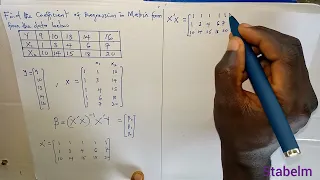 Find the Coefficient of Regression in Matrix form
from the data below
Y 9 10 13 14 16
X₁ 1 3 4 6 7
X₂ 10 14 15 18 20
X₁ X₂
Y = [9 10 13 14 16] , X = [1 1 10
1 3 14
1 4 15
1 6 18
1 7 20]
β = (X'X)⁻¹ X'Y = [β₀ β₁ β₂]
X' = [1 1 1 1 1
1 3 4 6 7
10 14 15 18 20]
X'X = [1 1 1 1 1
1 3 4 6 7
10 14 15 18 20
stabelm